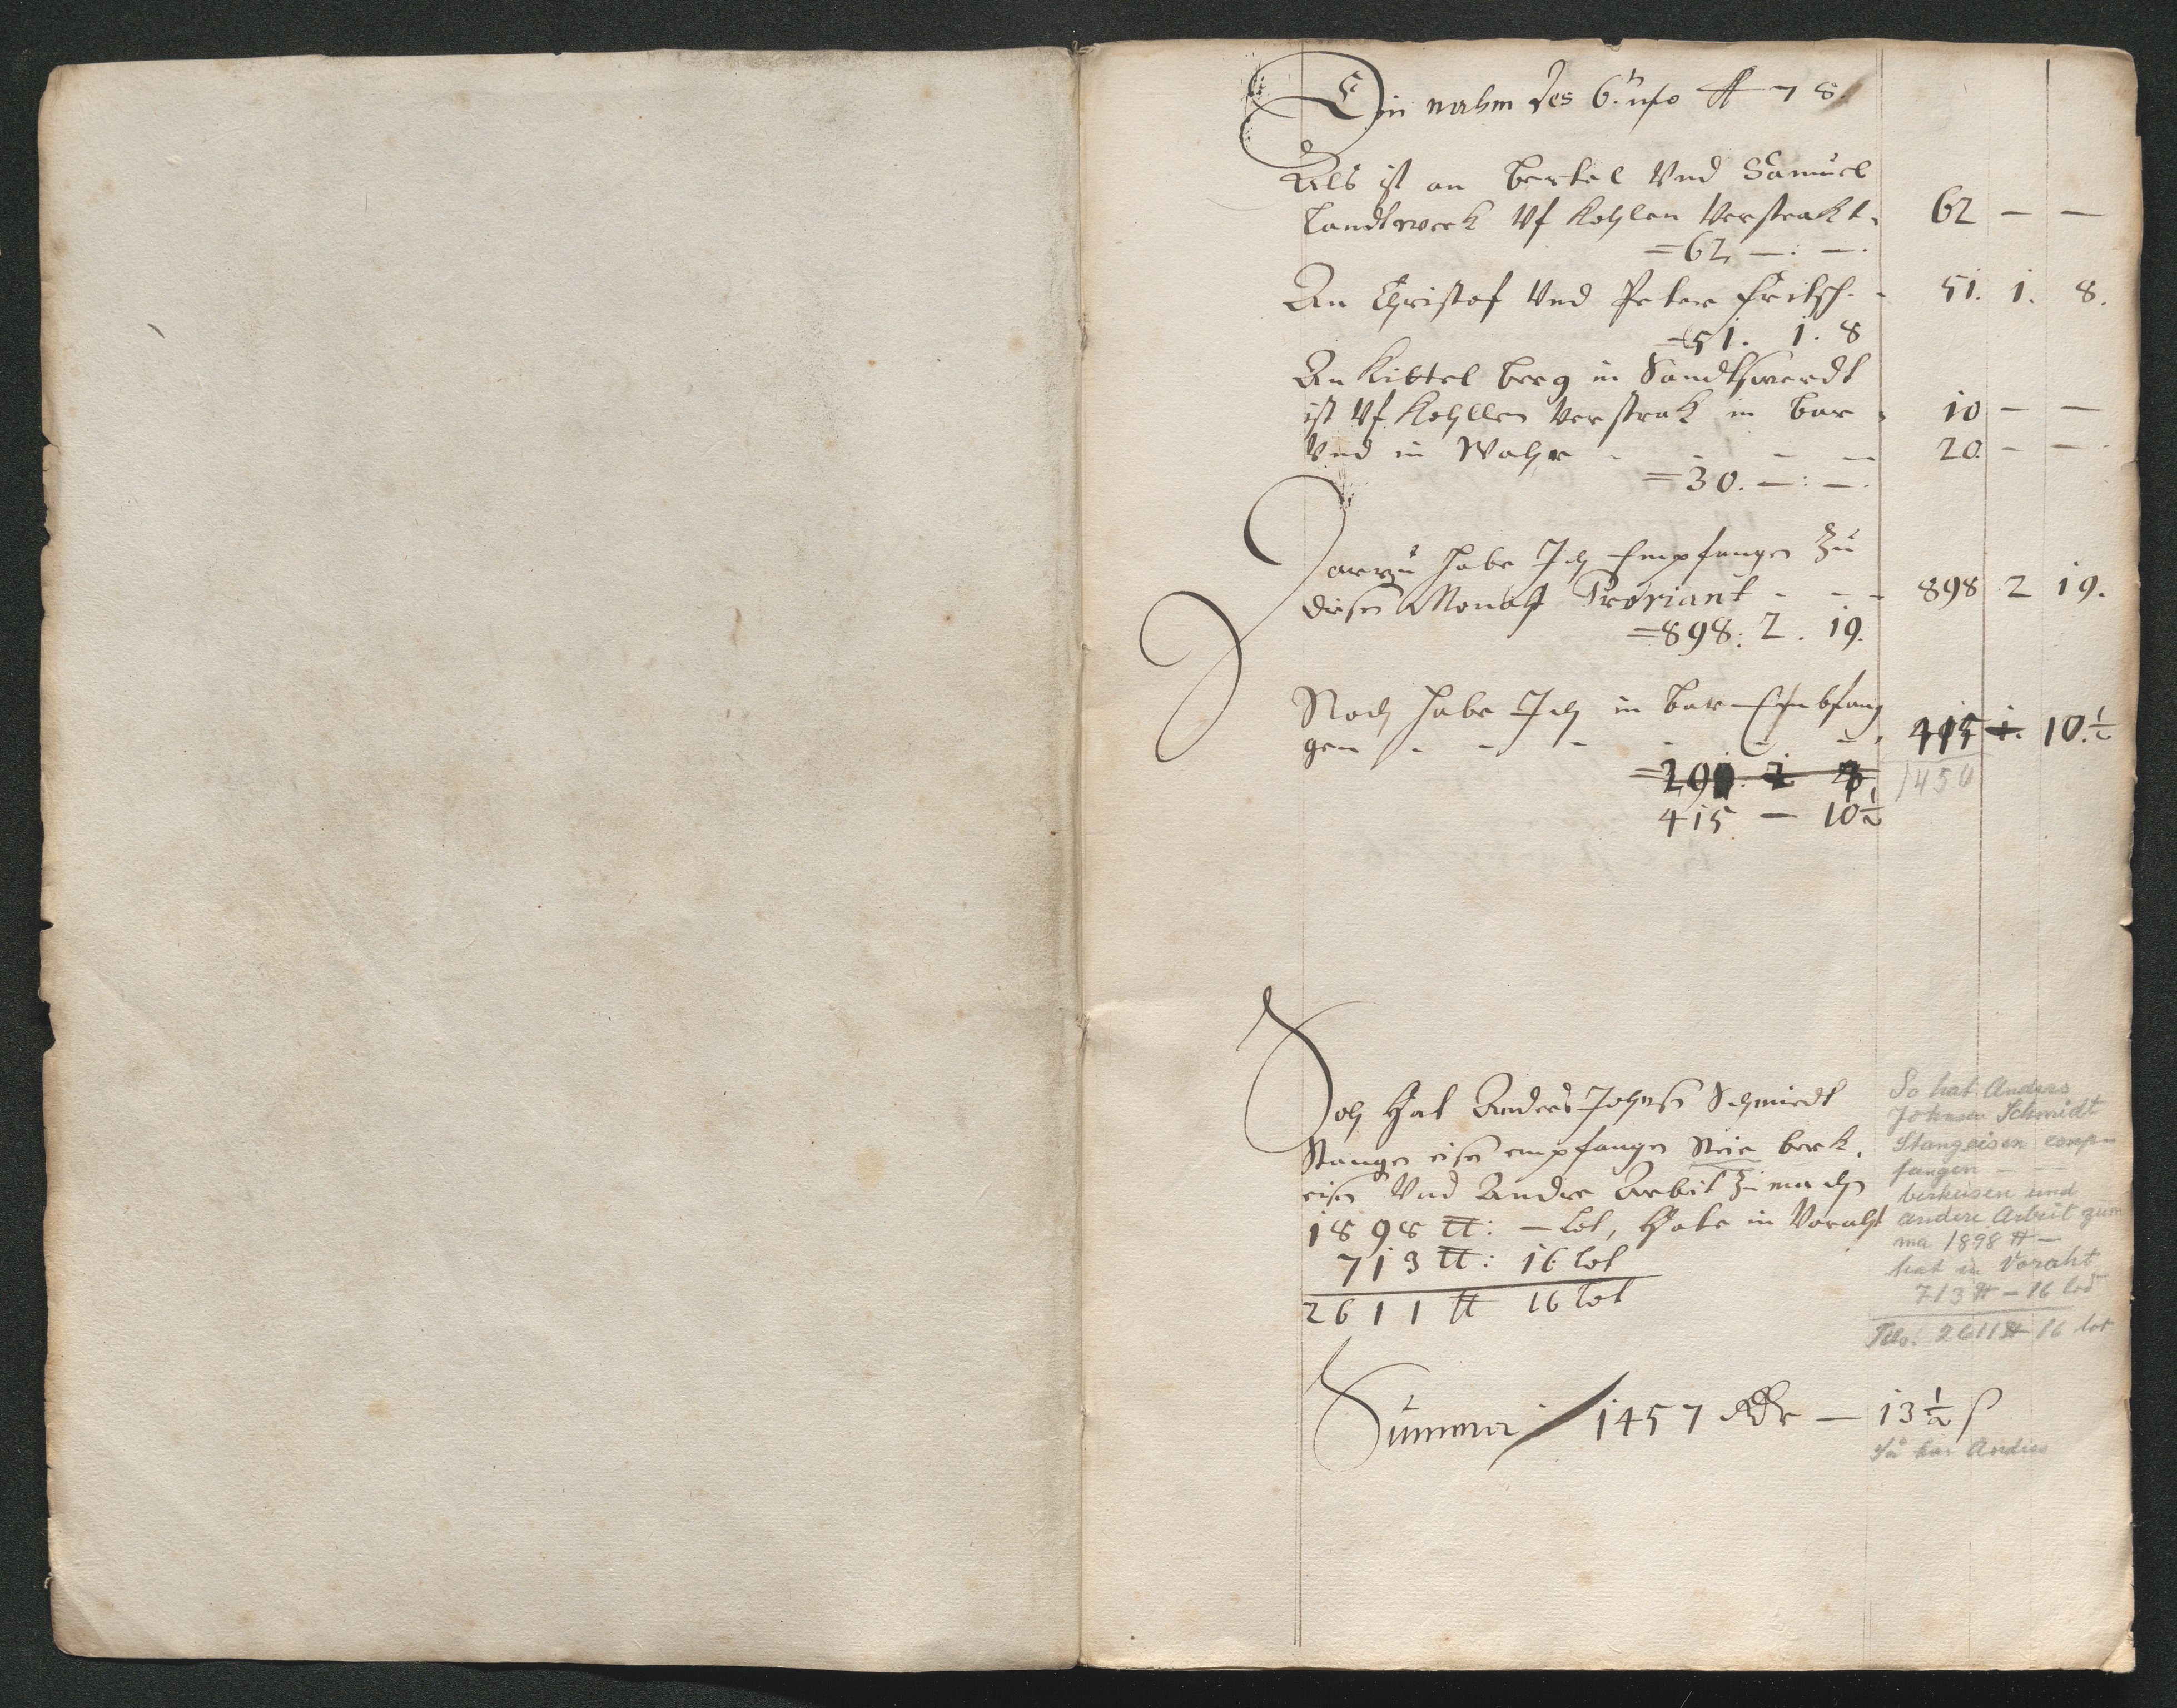 Ein nahm des 6.
Als ist an Bertel Vnd Samuel
Landtwerk Vf Kohlen Verstrakt. 62 — —
=62 —: —.
An Christof Vnd Peter Fritsch. - 51. 1. 8.
=51. 1. 8
An Kittel berg in Sandtswerdt
ist Vf Kohllen Verstrak in bar 10 — —
Vnd in Wahr - - - — 20. — —
=30. —: —.
Darzu habe Ich Empfangen Zu
diesen Monaht Proviant - - - 898 2 19.
=898: 2. 19.
Noch habe Ich in bar Embfang
gen - - - - - - 415 10.½
1450
415 — 10½
Soh Hat Anders Johnsen Schmiedt
Stangen eisen empfangen berk.
eisen Vnd Andre Arbeit Zu machen
1898 ℔: — Lot, Hate in Voraht
713 ℔: 16 Lot
2611 ℔ 16 Lot
So hat Anders
Johnsen Schmidt
Stangeisen emp-
fangen — —
berkeisen und
andere Arbeit zum
ma 1898 ℔ —
hat in Voraht
713 ℔ — 16 lod
2611 ℔ 16 lot
Summa 1457 Rdr — 13½ ß
Så har Anders